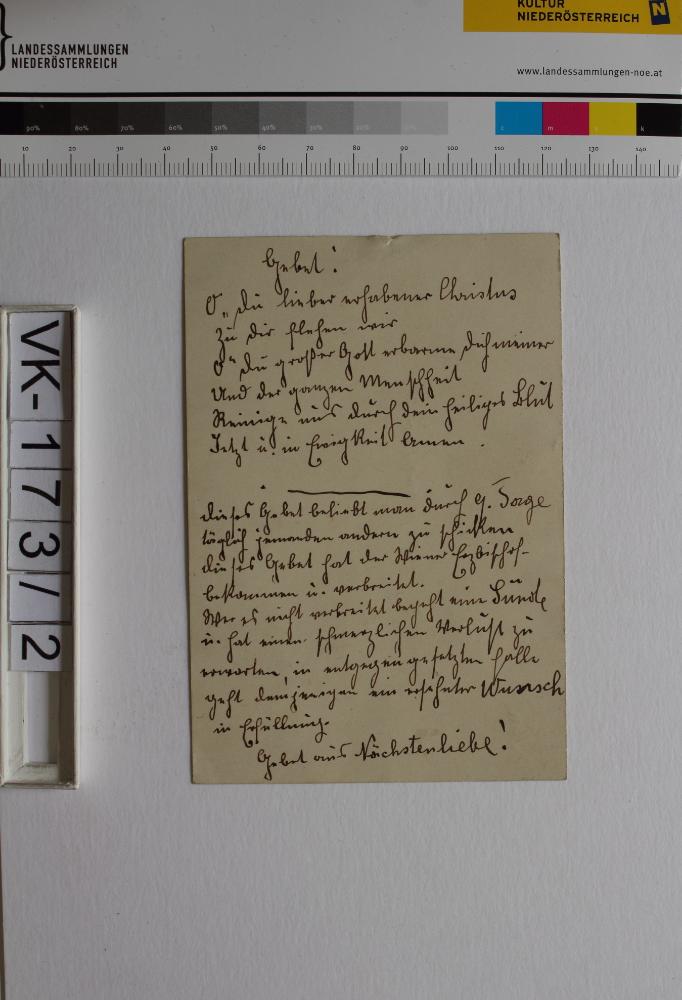 KULTUR
NIEDERÖSTERREICH N
LANDESSAMMLUNGEN
NIEDERÖSTERREICH
www.landessammlungen-noe.at
90% 80% 70% 60% 50% 40% 30% 20% c m y k
10 20 30 40 50 60 70 80 90 100 110 120 130 140
VK-173/2
Gebet!
O„ du lieber erhabener Christus
Zu dir flehen wir
O„ du großer Gott erbarme dich meiner
Und der ganzen Menschheit
Reinige uns durch dein heiliges Blut
Jetzt u. in Ewigkeit Amen.
dieses Gebet beliebt man durch 9. Tage
täglich jemanden andern zu schicken
dieses Gebet hat der Wiener Erzbischof
bekommen u. verbreitet.
Wer es nicht verbreitet begeht eine Sünde
u. hat einen schmerzlichen Verlust zu
erwarten, in entgegengesetzten Falle
geht demjenigen ein ersehnter Wunsch
in Erfüllung.
Gebet aus Nächstenliebe!